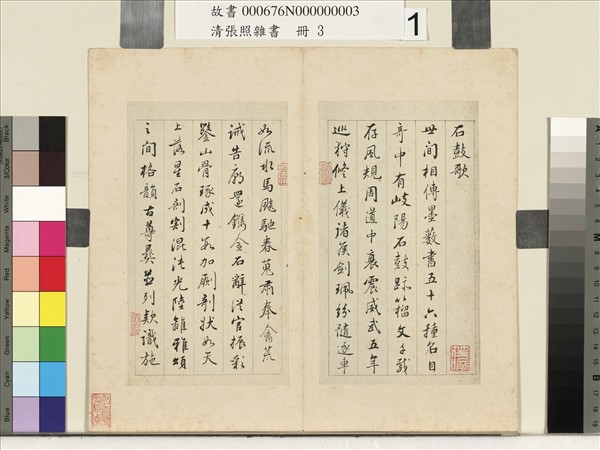 故書 000676N000000003
清張照雜書　冊 3
1
石鼓歌
世間相傳墨數書五十六種名目
奇中有岐陽石鼓跡籀文千載
存風規周道中衰震威武五年
巡狩修上儀諸侯劍珮紛隨逐車
如流水馬飈馳春蒐肅奉禽荒
誡告廟還鐫金石辭從官振彩
鑿山骨琢成十鼓加劂剞狀如天
上落星石剖割混沌光陸離雅頌
之間格韻古尊彝並列款識施
Black
3/Color
White
Magenta
Red
Yellow
Green
Cyan
Blue